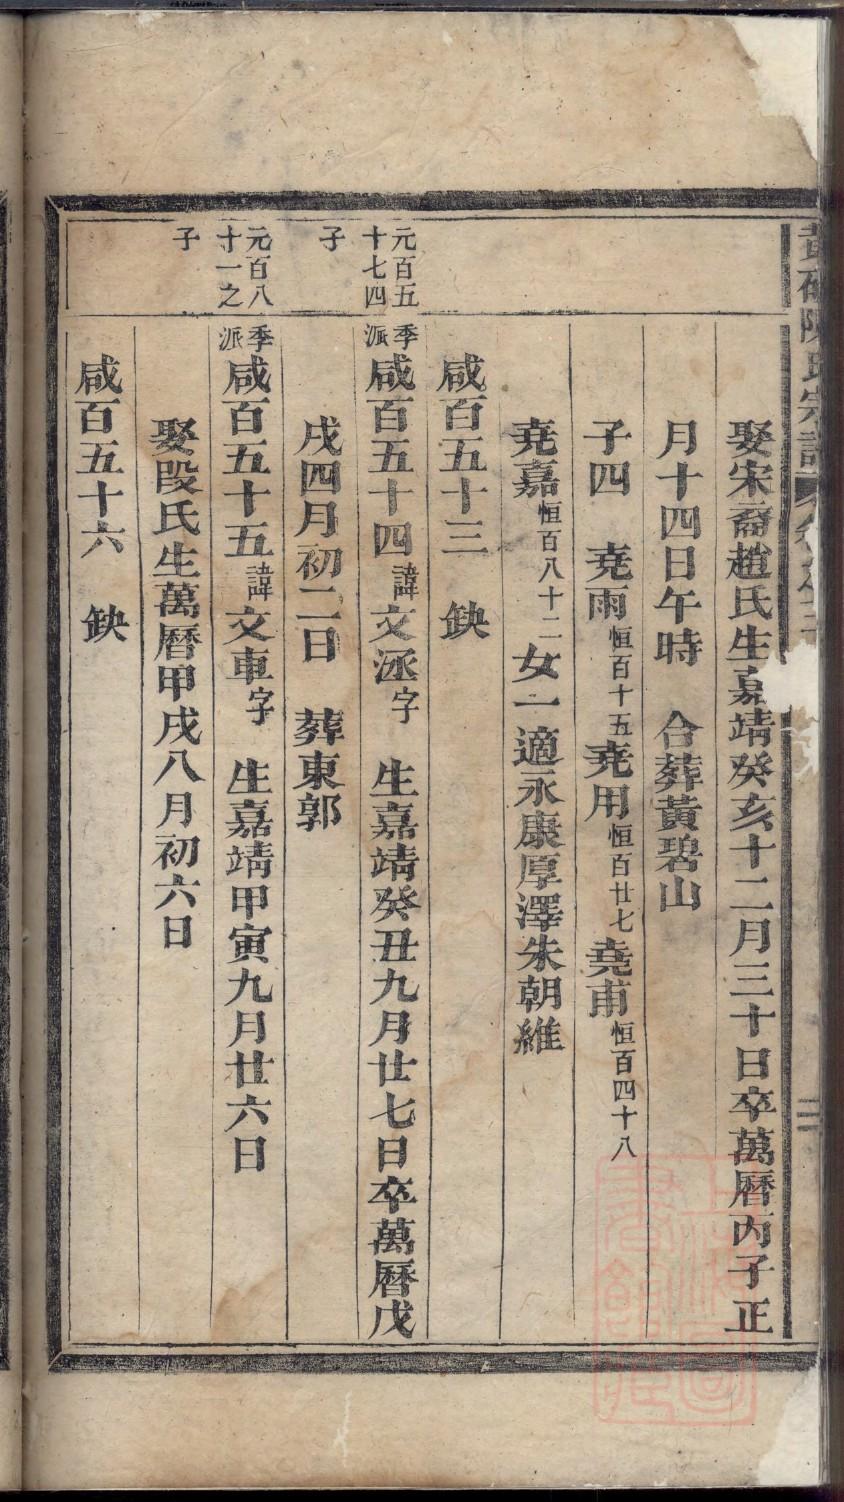 娶宋裔趙氏生嘉靖癸亥十二月三十日卒萬曆丙子正
月十四日午時　合葬黃碧山
子四　堯雨恒百十五堯用恒百廿七堯甫恒百四十八
堯嘉恒百八十二女一適永康厚澤朱朝維
咸百五十三　缺
元百五十七四子
季派咸百五十四諱文洆字　生嘉靖癸丑九月廿七日卒萬曆戊
戌四月初二日　葬東郭
元百八十一之子
季派咸百五十五諱文車字　生嘉靖甲寅九月廿六日
娶段氏生萬曆甲戌八月初六日
咸百五十六　缺